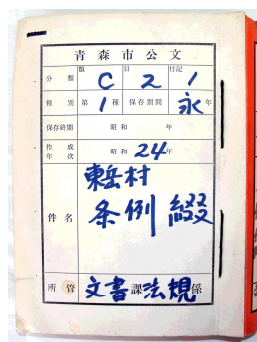 青森市公文
分類 類 C 目 2 付記 1
種別 第1種 保存期間 永年
保存終期 昭和 年
作成年次 昭和24年
件名 東岳村
条例綴
所管 文書課法規係